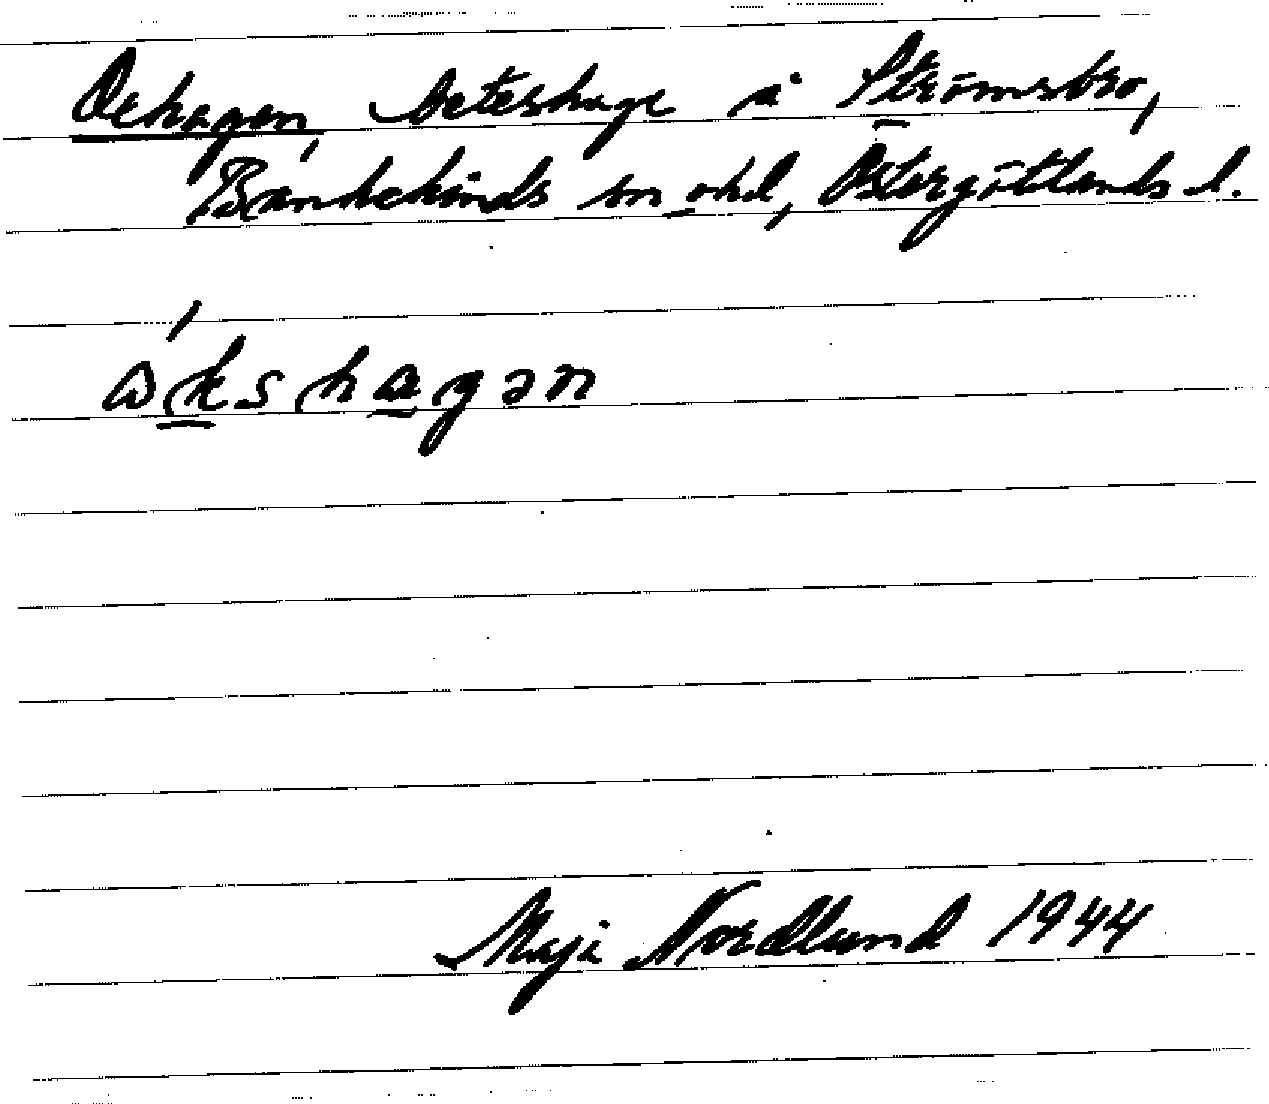 Oxhagen, beteshage å Strömsbro,
Bankekinds sn o hd, Östergötlands l.
ωkshagən
Maja Nordlund 1944